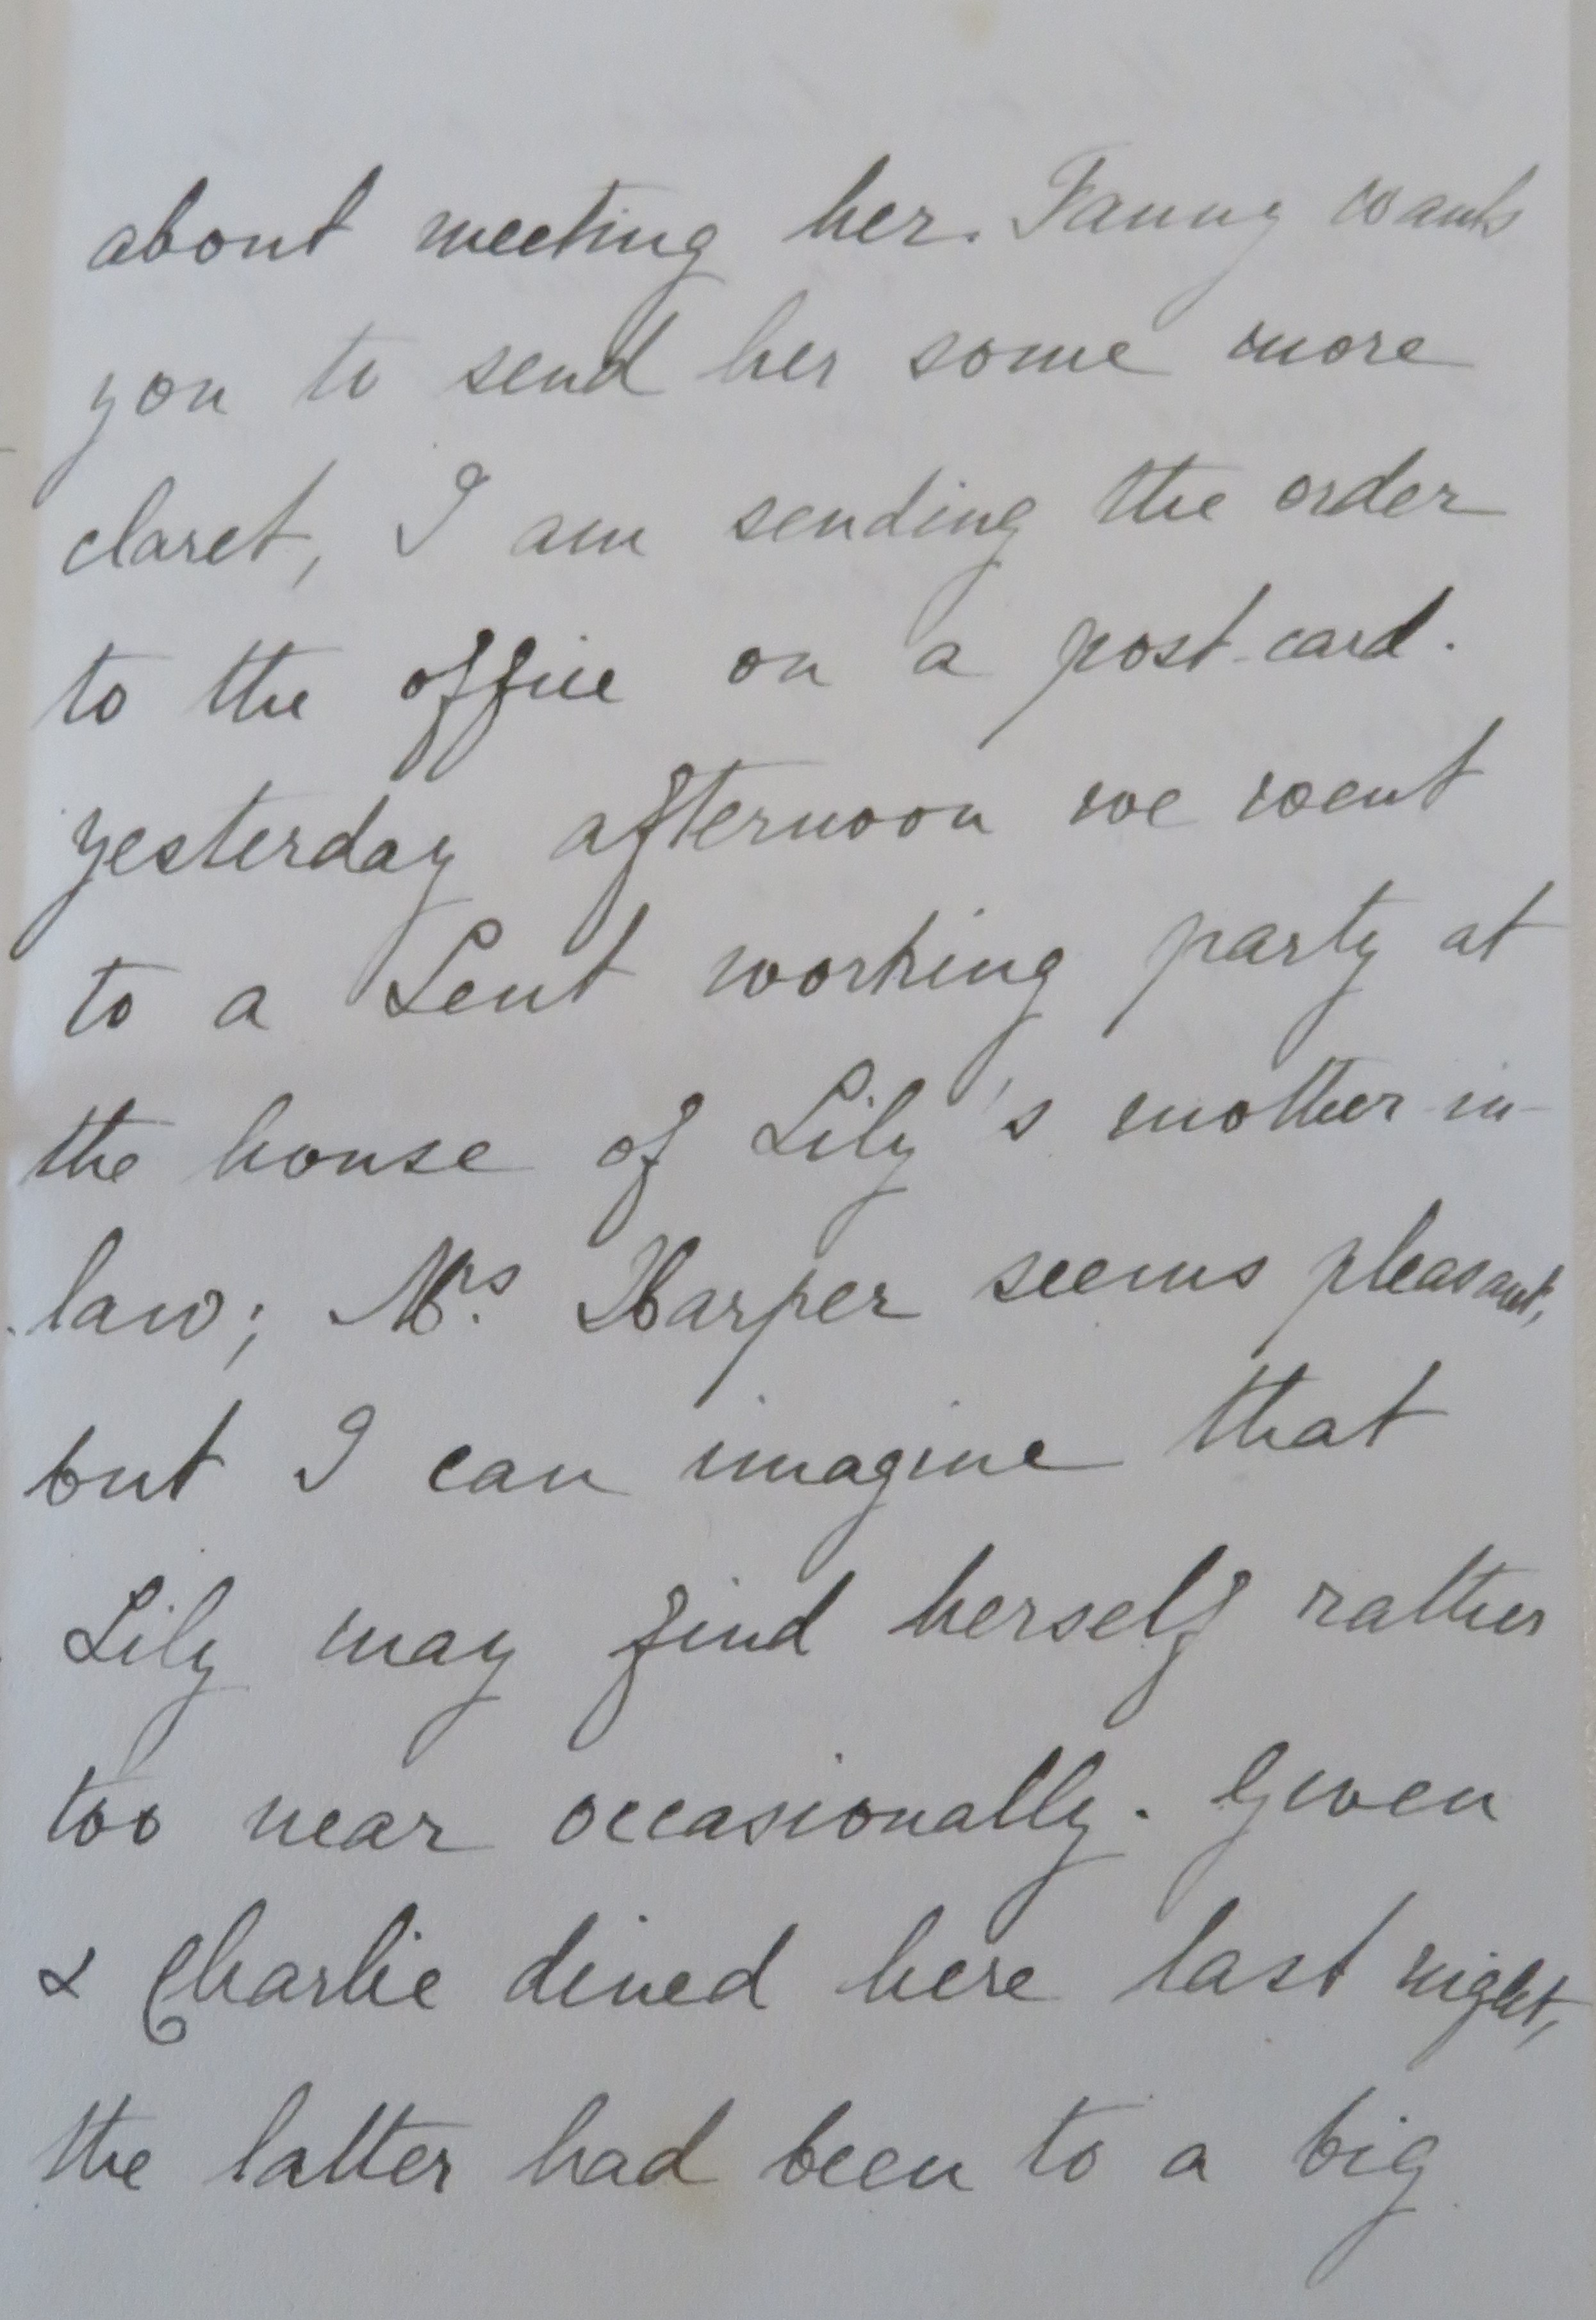 about meeting her. Fanny wants
you to send her some more
claret, I am sending the order
to the office on a post-card.
yesterday afternoon we went
to a Lent working party at
the house of Lily's mother-in-
law; Mrs. Harper seems pleasant,
but I can imagine that
Lily may find herself rather
too near occasionally. Gwen
& Charlie dined here last night,
the latter had been to a big